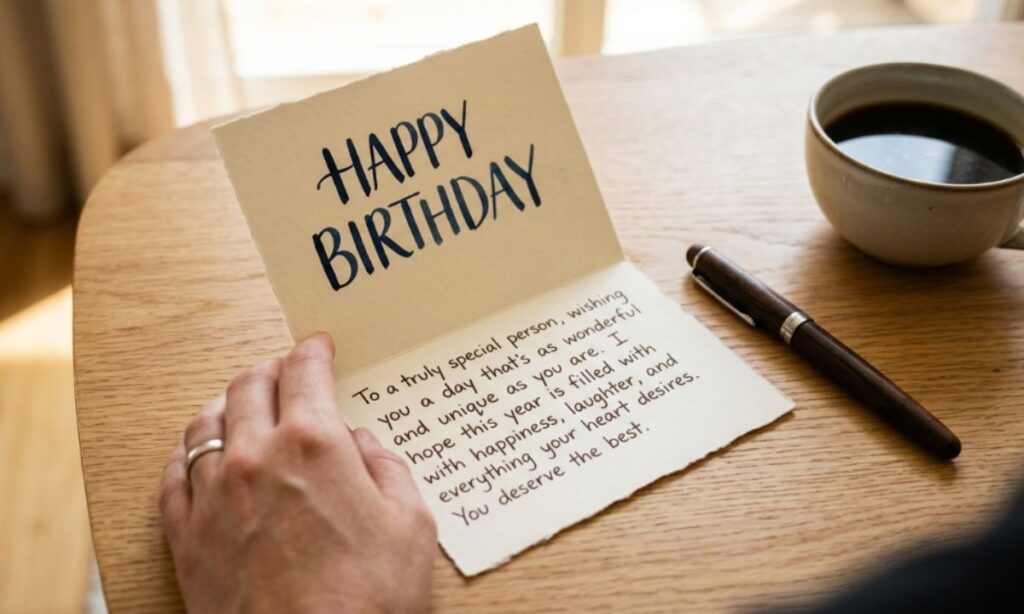 HAPPY
BIRTHDAY
To a truly special person, wishing
you a day that's as wonderful
and unique as you are. I
hope this year is filled with
with happiness, laughter, and
everything your heart desires.
You deserve the best.